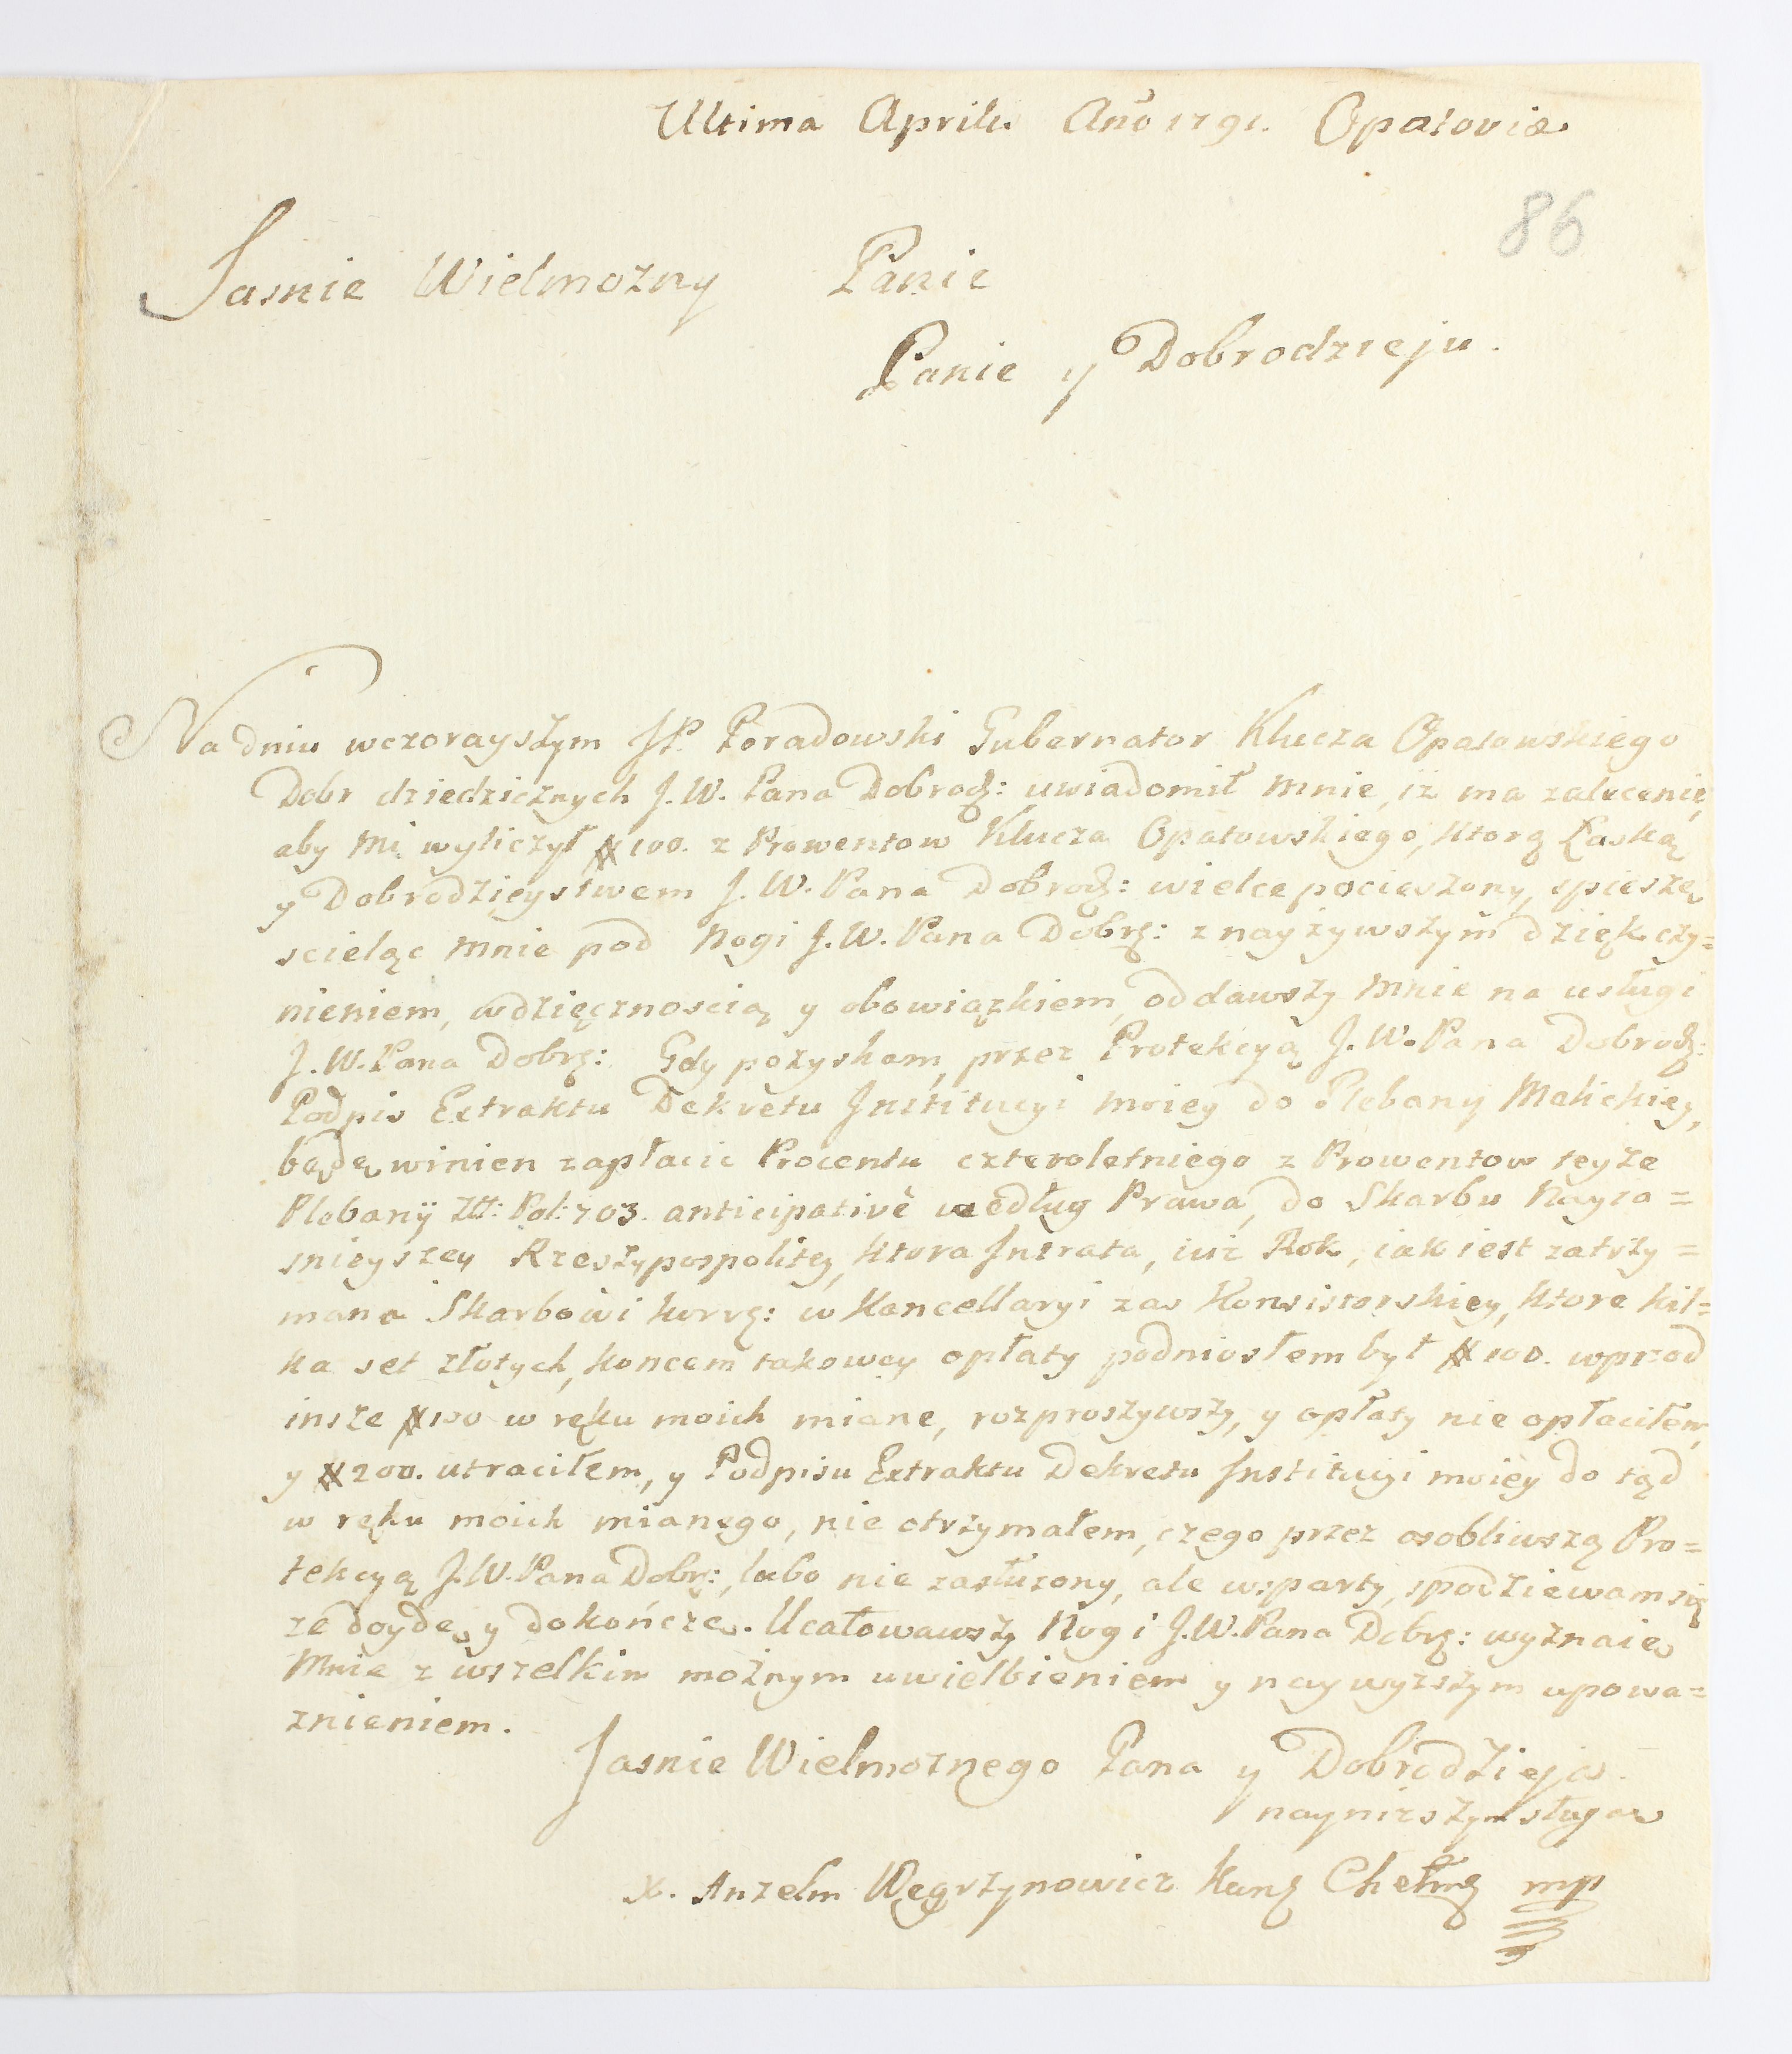 Ultima Aprilis Año 1791. Opatoviæ.
86
Jasnie Wielmozny Panie
Panie y Dobrodzieju.
Na dniu wczorayszym JP. Poradowski Gubernator Klucza Opatowskiego
Dobr dziedzicznych J.W. Pana Dobrodz: uwiadomił mnie, iż ma zalecenie,
aby mi wyliczył # 100. z Prowentow Klucza Opatowskiego, ktorą Łaską
y Dobrodzieystwem J.W. Pana Dobrodz: wielce pocieszony, spieszę
scieląc mnie pod Nogi J.W. Pana Dobrz: z nayżywszym dziękczy=
nieniem, wdzięcznoscią y obowiązkiem, oddawszy mnie na usługi
J.W. Pana Dobrz: Gdy pozyskam, przez Protekcyą J.W. Pana Dobrodz:
Podpis Extraktu Dekretu Institucyi moiey do Plebanij Malickiey,
będę winien zapłacic Procentu czteroletniego z Prowentow teyże
Plebanij Złł: Pol: 703. anticipativè według Prawa, do Skarbu Nayia=
snieyszey Rzeszypospolitey, ktora Intrata, iuż Rok, iak iest zatrzy=
mana Skarbowi w Kancellaryi zas Konsistorskiey, ktore kil=
ka set złotych, koncem takowey opłaty podniosłem był # 100. wprzod
insze # 100 w ręku moich miane, rozproszywszy, y opłaty nie opłaciłem,
y # 200. utraciłem, y Podpisu Extraktu Dekretu Institucyi moiey do tąd
w ręku moich mianego, nie otrzymałem, czego przez osobliwszą Pro=
tekcyą J.W. Pana Dobrz:, lubo nie zasłużony, ale wsparty, spodziewam się
że doydę y dokończę. Ucałowawszy Nogi J.W. Pana Dobrz: wyznaię
Mnie z wszelkim możnym uwielbieniem y naywyższym upowa=
żnieniem.
Jasnie Wielmożnego Pana y Dobrodzieja
nayniższym sługą
X. Anzelm Węgrzynowicz Kanz Chełmz mp